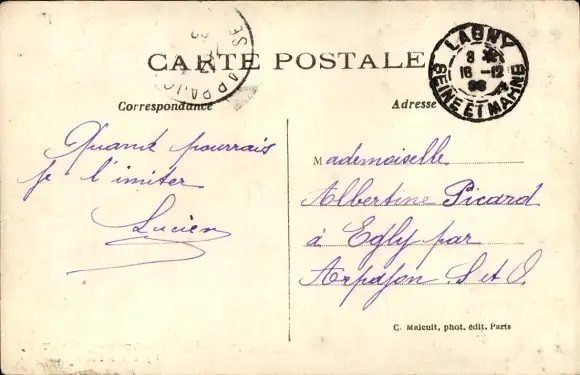 CARTE POSTALE
LAGNY
16 -12
SEINE ET MARNE
Correspondance
Adresse
Quand pourrais
je l'imiter
Lucien
Mademoiselle
Albertine Picard
à Egly par
Arpajon. S et O.
C. Malcuit, phot. édit. Paris